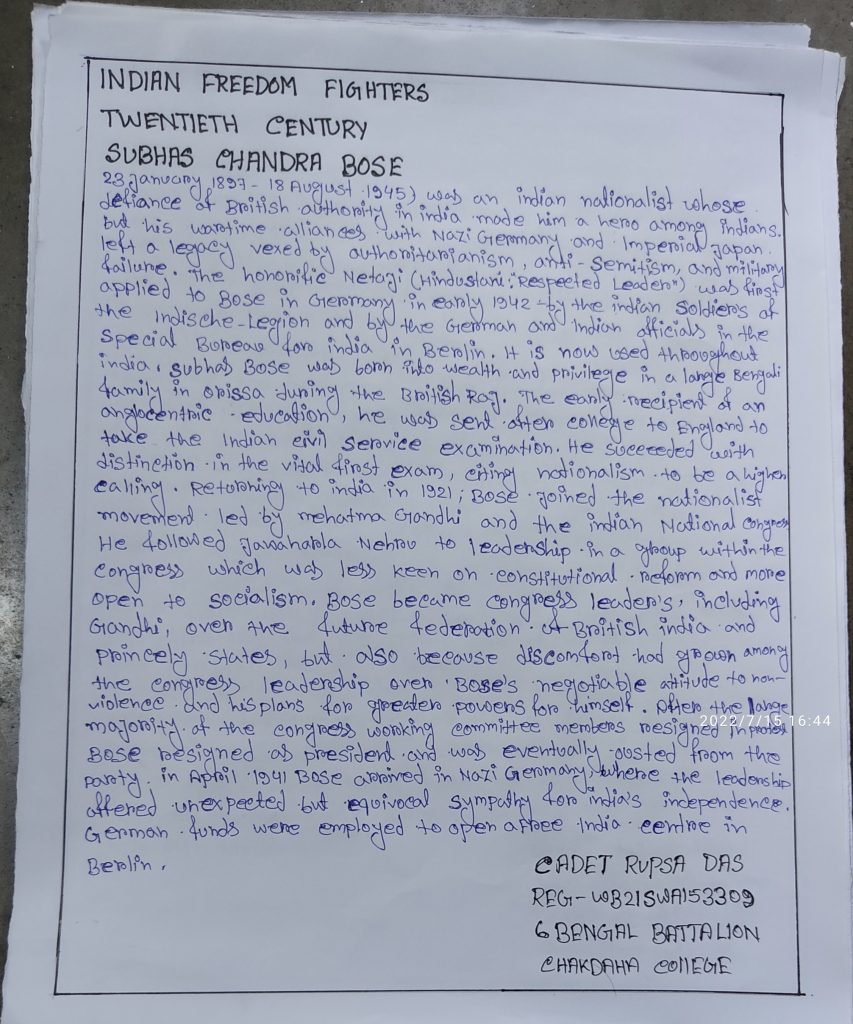 INDIAN FREEDOM FIGHTERS
TWENTIETH CENTURY
SUBHAS CHANDRA BOSE
23 January 1897 - 18 August 1945) was an indian nationalist whose
defiance of British authority in india made him a hero among indians.
but his wartime alliances with Nazi Germany and Imperial Japan.
left a legacy vexed by authoritarianism, anti-Semitism, and military
failure. The honorific Netaji (Hindustani: "Respected Leader") was first
applied to Bose in Germany in early 1942 - by the indian Soldiers of
the Indische-Legion and by the German and Indian officials in the
Special Bureau for india in Berlin. It is now used throughout
india. subhas Bose was born into wealth and privilege in a large Bengali
family in orissa during the British Raj. The early recipient of an
anglocentric education, he was sent after college to England to
take the Indian civil service examination. He succeeded with
distinction in the vital first exam, citing nationalism to be a higher
calling. Returning to india in 1921; Bose joined the nationalist
movement led by mehatma Gandhi and the indian National congress
He followed Jawaharla Nehru to leadership in a group within the
congress which was less keen on constitutional reform and more
open to socialism. Bose became congress leader's, including
Gandhi, over the future federation of British india and
princely states, but also because discomfort had grown among
the congress leadership over Bose's negotiable attitude to non-
violence and his plans for greater powers for himself. After the large
majority of the congress working committee members resigned in protest
Bose resigned as president and was eventually oosted from the
party. in April 1941 Bose arrived in Nazi Germany, where the leadership
offered unexpected but equivocal sympathy for india's independence.
German funds were employed to open a free India centre in
Berlin.
CADET RUPSA DAS
REG-WB21SWA153309
6 BENGAL BATTALION
CHAKDAHA COllEGE
2022/7/15 16:44